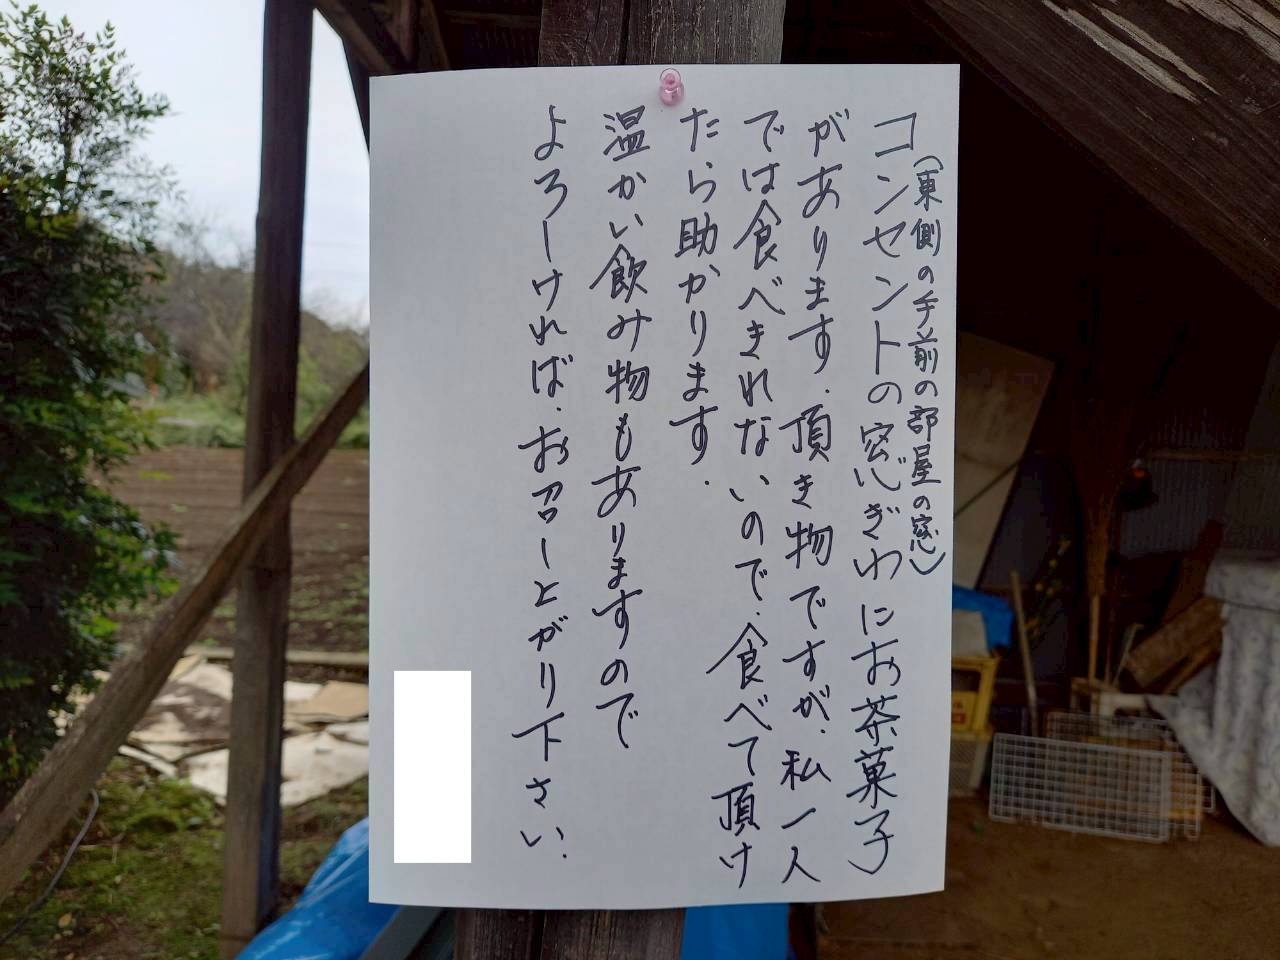 (東側の手前の部屋の窓)
コンセントの窓ぎわにお茶菓子
があります.頂き物ですが、私一人
では食べきれないので、食べて頂け
たら助かります.
温かい飲み物もありますので
よろしければ、お召しあがり下さい.